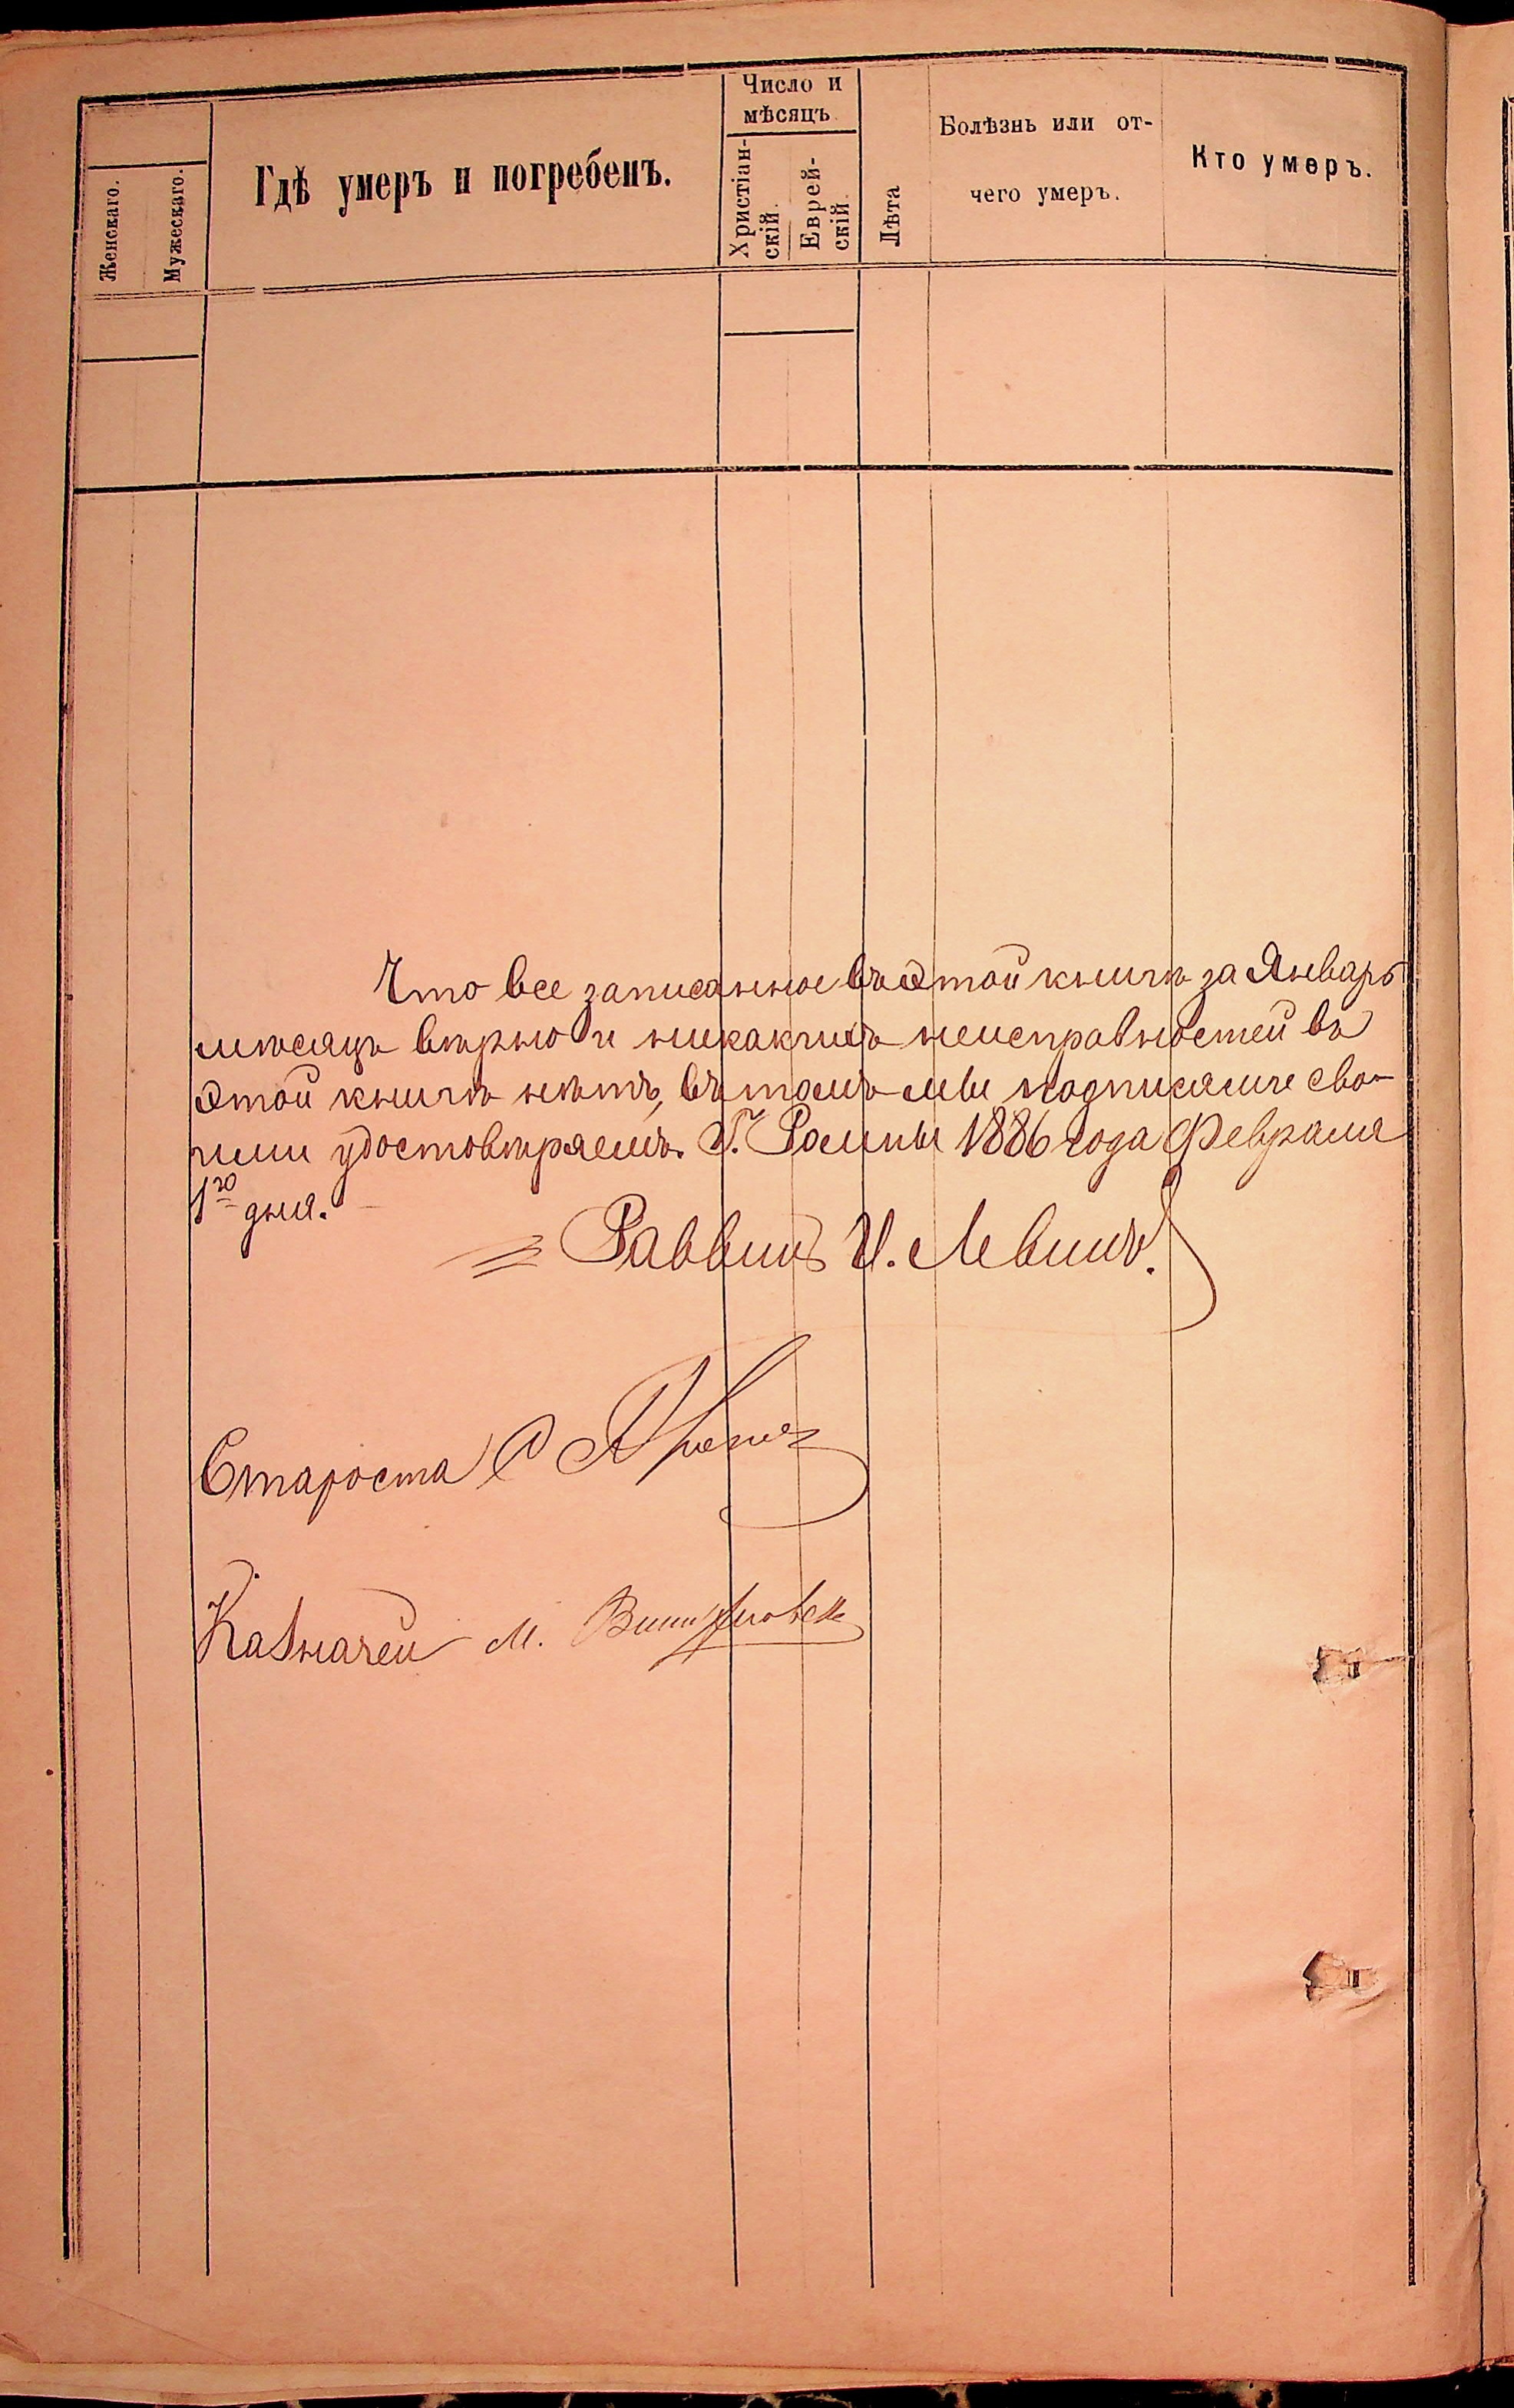 Женскаго.
Мужескаго.
Гдѣ умеръ и погребенъ.
Число и
мѣсяцъ
Христіан-
скій.
Еврей-
скій.
Лѣта
Болѣзнь или от-
чего умеръ.
Кто умеръ.
Что все записанное въ этой книгѣ за Январь
мѣсяцъ вѣрно и никакихъ неисправностей въ
этой книгѣ нѣтъ, въ томъ мы подписями сво-
ими удостовѣряемъ. Г. Ромны 1886 года Февраля
1го дня.
Раввинъ И. Левинъ.
Староста
Казначей М.